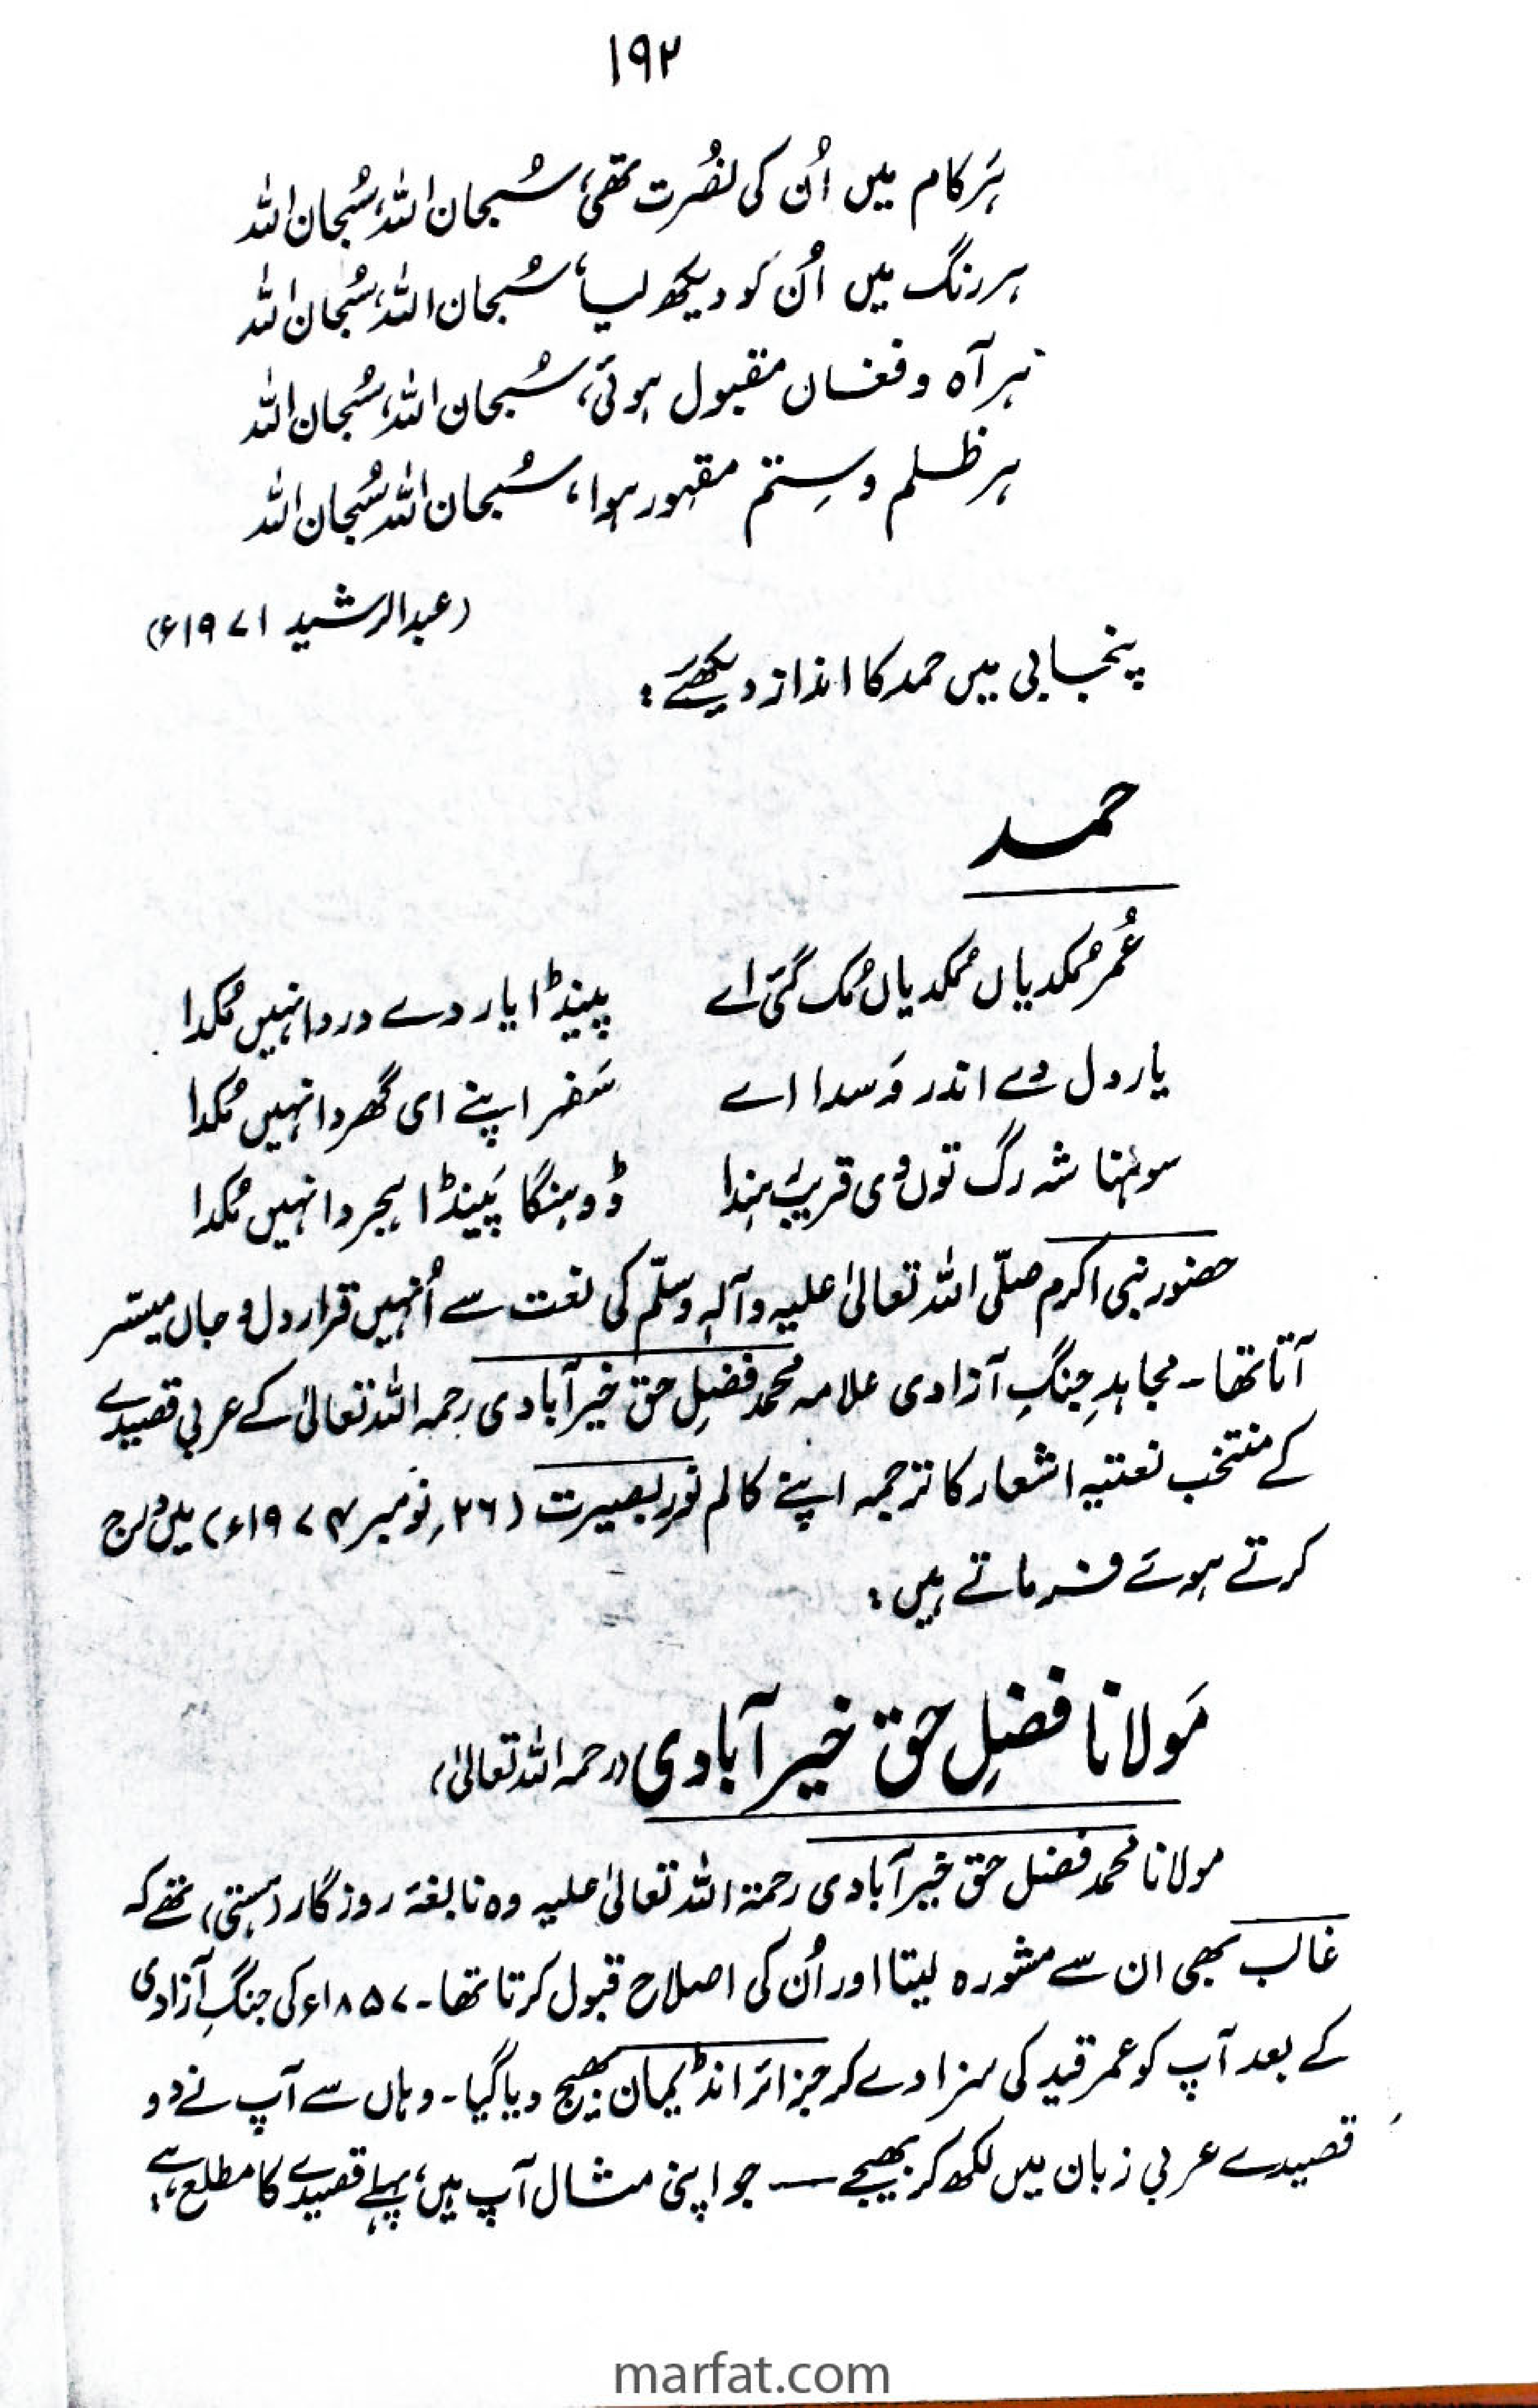 ۱۹۲
ہَر کام میں اُن کی نصُرت تھی، سُبحان اللہ، سُبحان اللہ
ہر رنگ میں اُن کَو دیکھ لیا، سُبحان اللہ، سُبحان اللہ
ہر آہ و فغاں مقبول ہوئی، سُبحان اللہ، سُبحان اللہ
ہر ظلم و سِتم مقہور ہوا، سُبحان اللہ سُبحان اللہ
(عبدالرشید ۱۹۷۱ء)
پنجابی میں حمد کا انداز دیکھئے:
حمد
عُمر مُکدیاں مُکدیاں مُک گئی اے پینڈا یار دے در دا نہیں مُکدا
یار دل دے اندر وَسدا اے سَفر اپنے ای گھر دا نہیں مُکدا
سوہنا شہ رگ توں وی قریب ہندا ڈوہنگا پَینڈا ہجر دا نہیں مُکدا
حضور نبی اکرم صلّی اللہ تعالیٰ علیہ وآلہٖ وسلّم کی نعت سے اُنہیں قرار دل و جاں میسّر
آتا تھا۔ مجاہدِ جنگِ آزادی علامہ محمد فضلِ حق خیر آبادی رحمہ اللہ تعالیٰ کے عربی قصیدے
کے منتخب نعتیہ اشعار کا ترجمہ اپنے کالم نورِ بصیرت (۲۶؍ نومبر ۱۹۷۴ء) میں درج
کرتے ہوئے فرماتے ہیں:
مَولانا فضلِ حق خیر آبادی (رحمہ اللہ تعالیٰ)
مولانا محمد فضل حق خیر آبادی رحمۃ اللہ تعالیٰ علیہ وہ نابغۂ روزگار (ہستی) تھے کہ
غالب بھی ان سے مشورہ لیتا اور اُن کی اصلاح قبول کرتا تھا۔ ۱۸۵۷ء کی جنگِ آزادی
کے بعد آپ کو عمر قید کی سزا دے کر جزائر انڈیمان بھیج دیا گیا۔ وہاں سے آپ نے دو
قصیدے عربی زبان میں لکھ کر بھیجے — جو اپنی مثال آپ ہیں، پہلے قصیدے کا مطلع ہے:
marfat.com